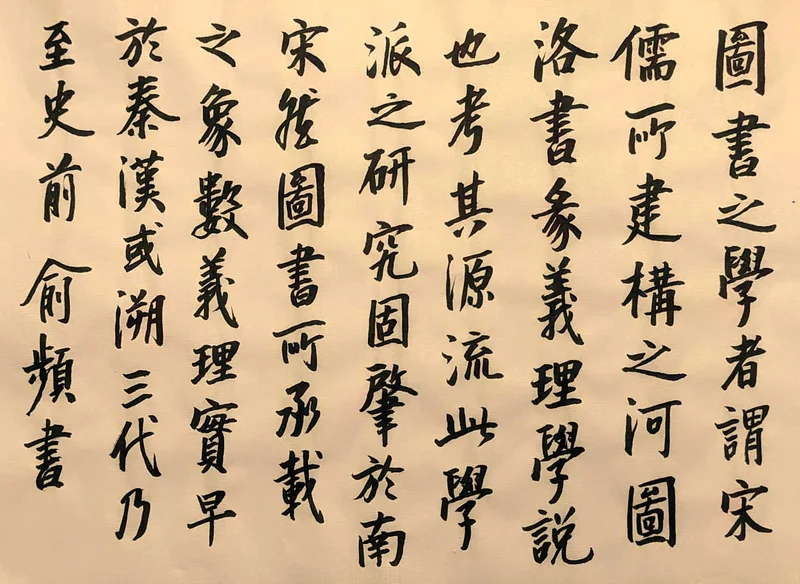 圖書之學者謂宋
儒所建構之河圖
洛書彖義理學說
也考其源流此學
派之研究固肇於南
宋然圖書所承載
之象數義理實早
於秦漢或溯三代乃
至史前 俞頻書